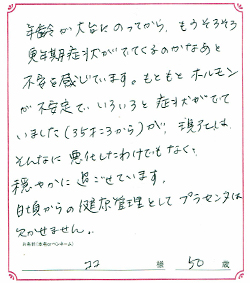 年齢が大台にのってから、もうそろそろ
更年期症状がでてくるのかなあと
不安を感じています。もともとホルモン
が不安定で、いろいろと症状がでて
いました(35才ころから)が、現在は
そんなに悪化したわけでもなく、
穏やかに過ごせています。
日頃からの健康管理としてプラセンタは
欠かせません。
お名前(本名orペンネーム)
ココ 様 50 歳